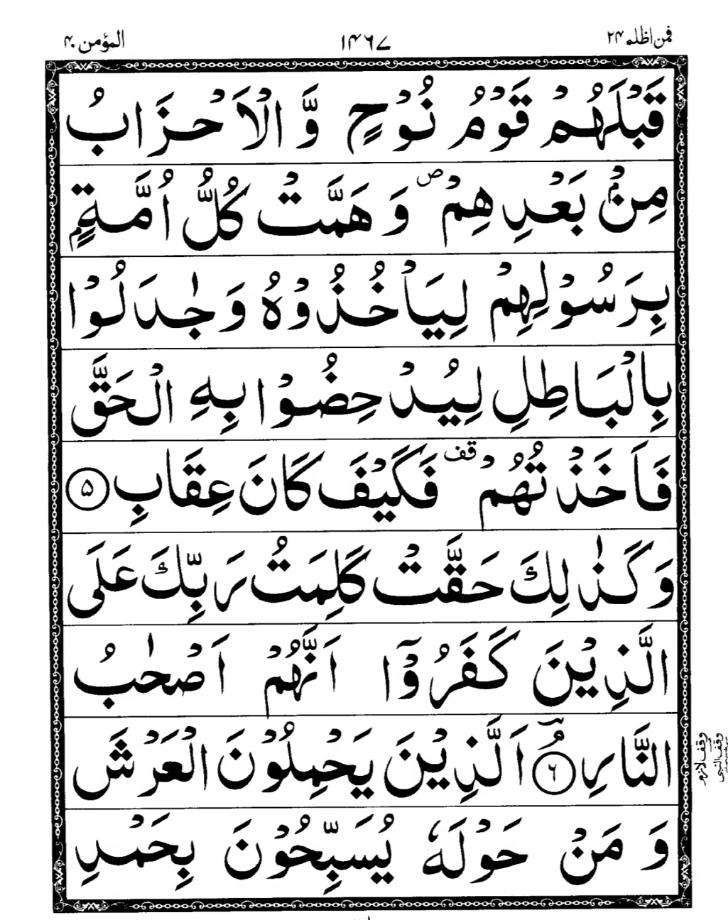 المؤمن ۴۰ ۱۴۶۷ فمن اظلم ۲۴
قَبْلَهُمْ قَوْمُ نُوْحٍ وَّ الْاَحْزَابُ
مِنْۢ بَعْدِهِمْ ۪ وَ هَمَّتْ كُلُّ اُمَّةٍۭ
بِرَسُوْلِهِمْ لِيَاْخُذُوْهُ وَ جٰدَلُوْا
بِالْبَاطِلِ لِيُدْحِضُوْا بِهِ الْحَقَّ
فَاَخَذْتُهُمْ قف فَكَيْفَ كَانَ عِقَابِ ۵
وَ كَذٰلِكَ حَقَّتْ كَلِمَتُ رَبِّكَ عَلَى
الَّذِيْنَ كَفَرُوْۤا اَنَّهُمْ اَصْحٰبُ
النَّارِ ۶ اَلَّذِيْنَ يَحْمِلُوْنَ الْعَرْشَ
وَ مَنْ حَوْلَهٗ يُسَبِّحُوْنَ بِحَمْدِ
وقف لازم